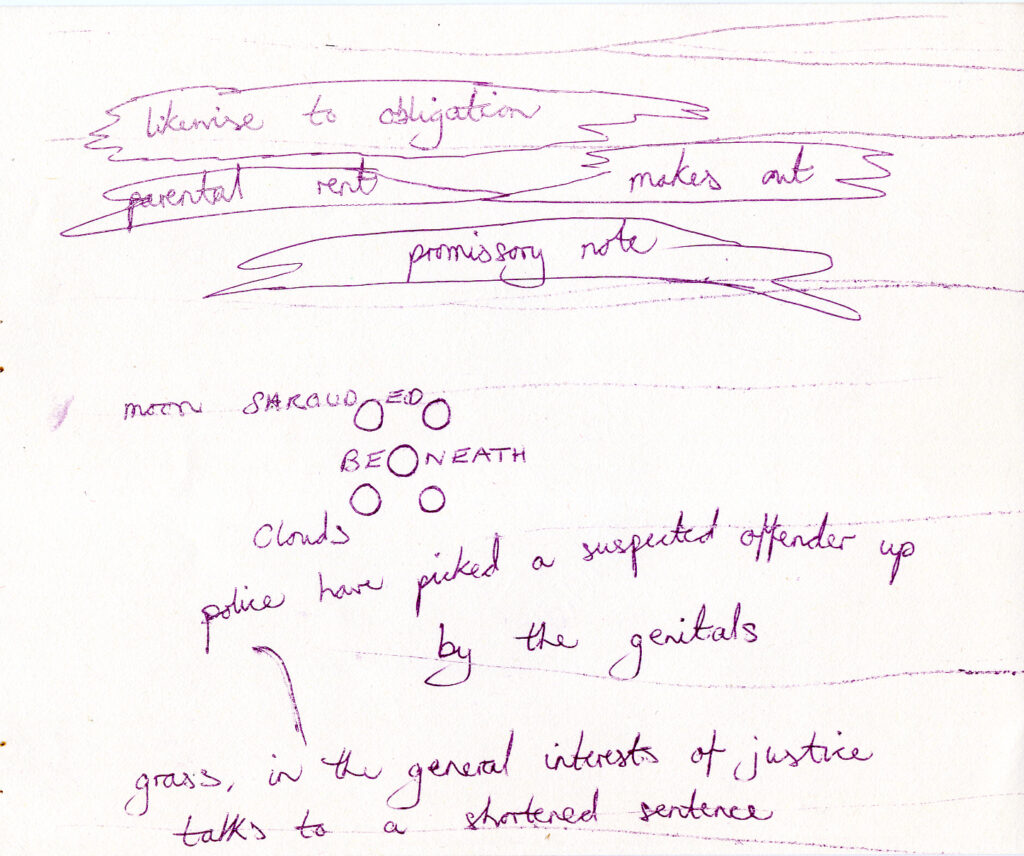 likewise to obligation
parental rent makes out
promissory note
moon SHROUDED
BENEATH
Clouds
police have picked a suspected offender up
by the genitals
grass, in the general interests of justice
talks to a shortened sentence